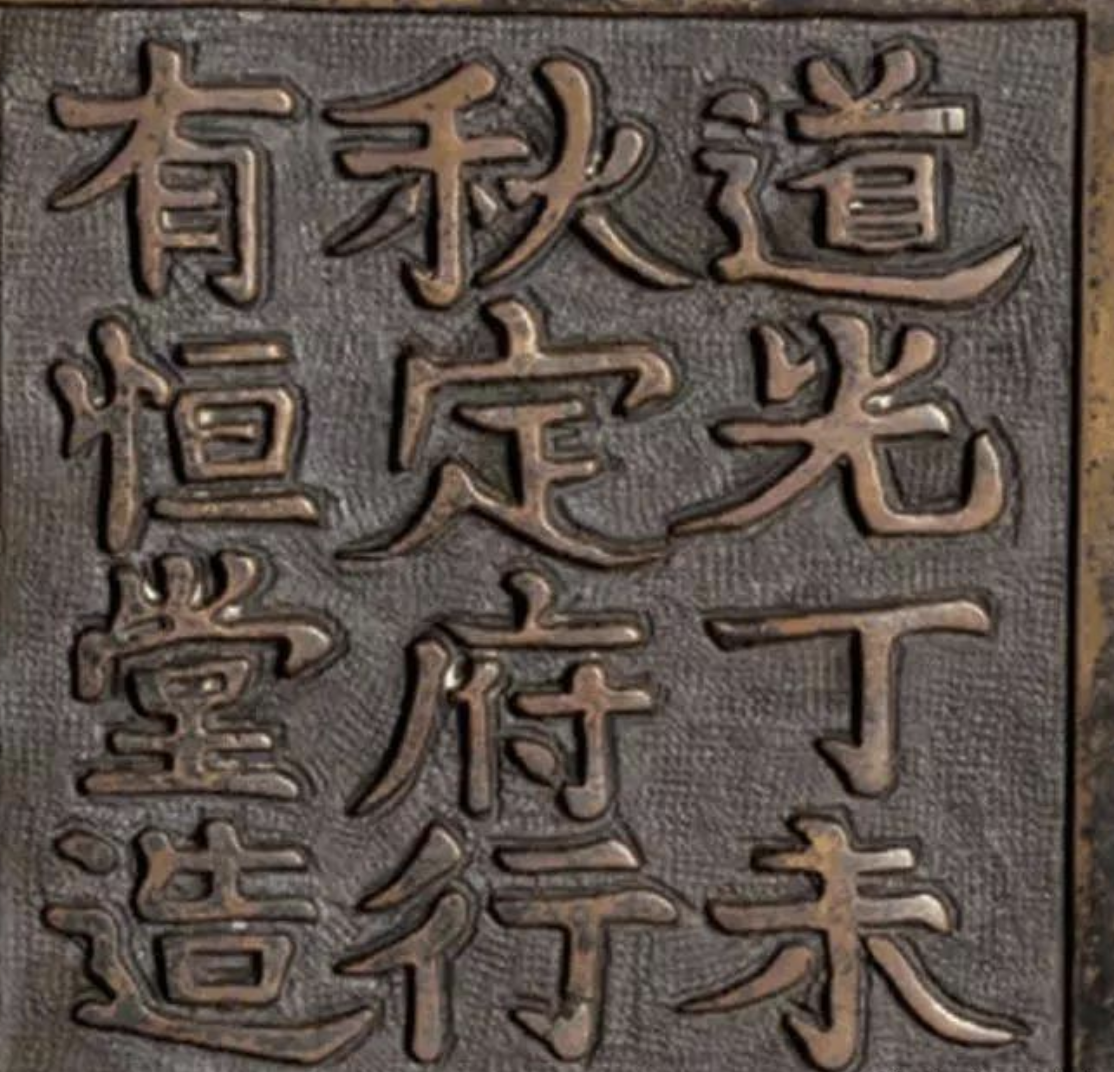 道光丁未
秋定府行
有恒堂造